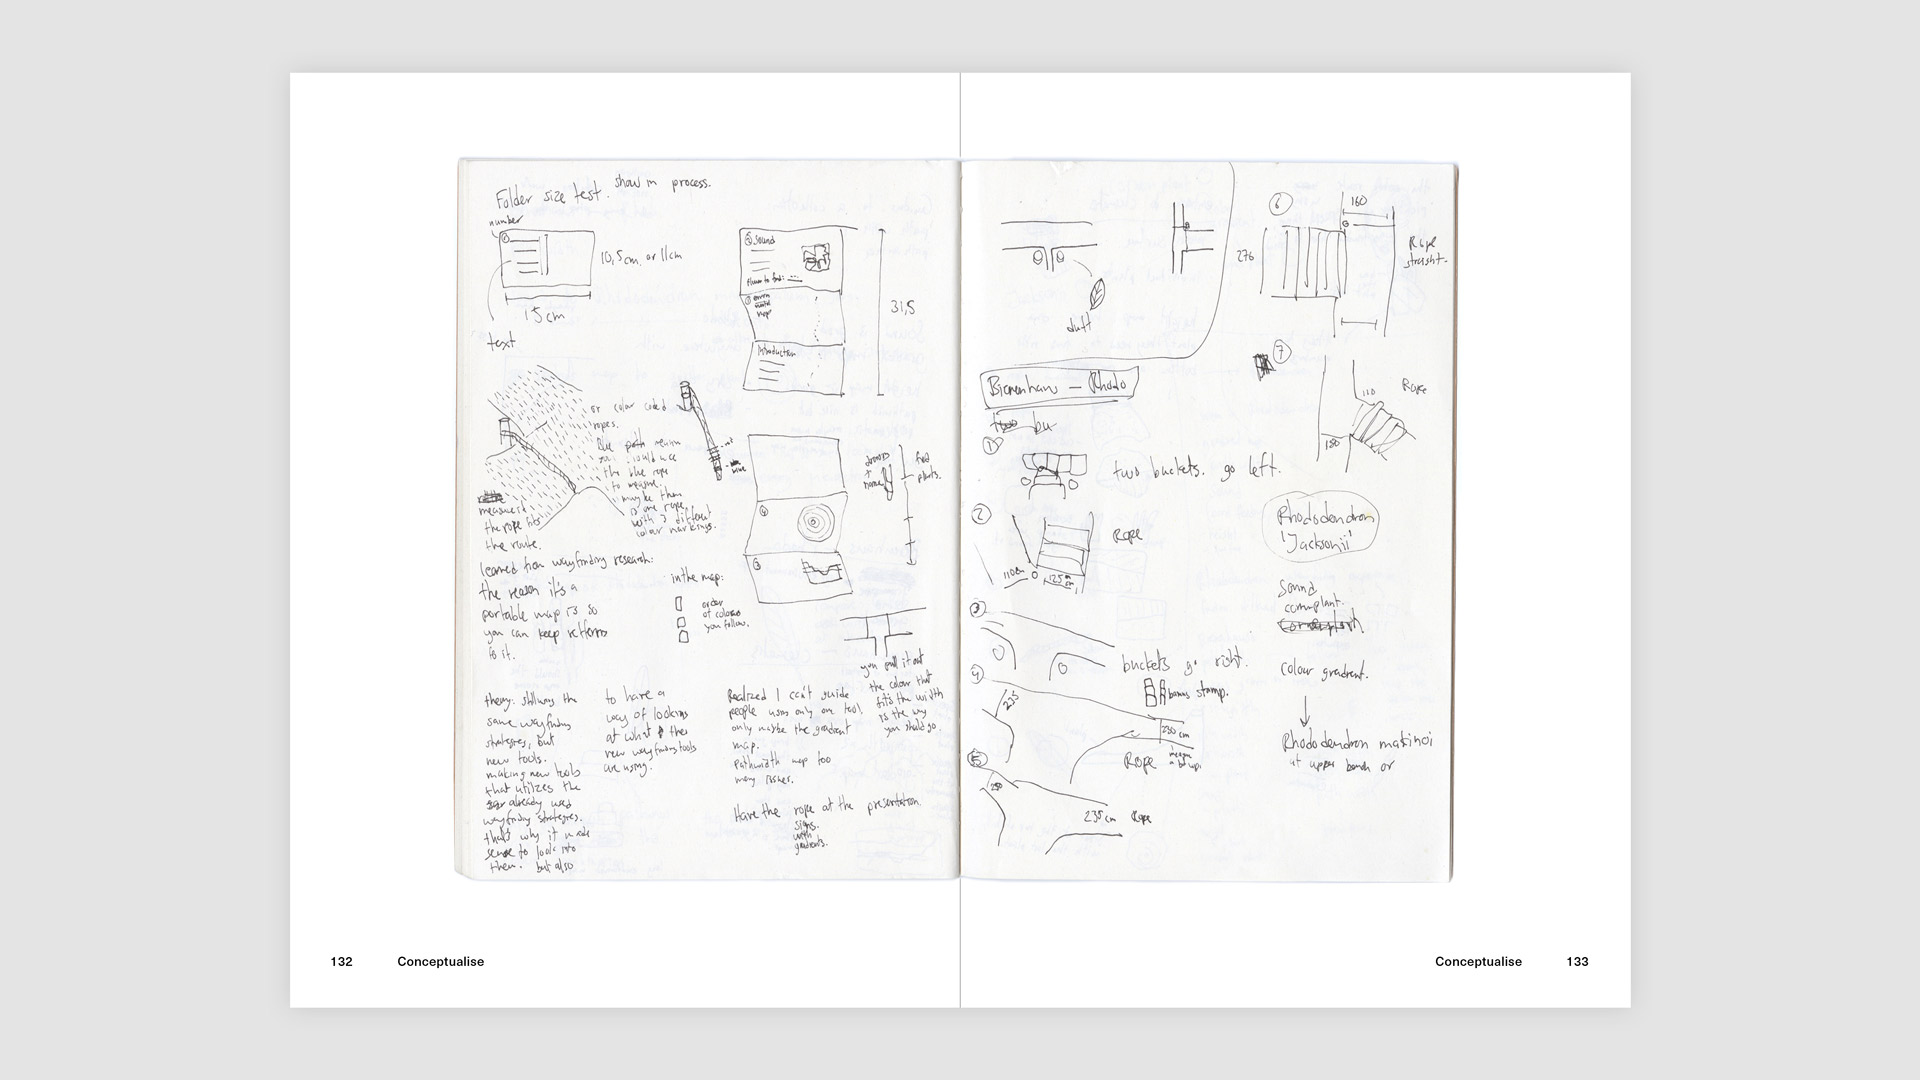 Folder size test. show in process.
number
10,5cm. or 11cm
15cm
text
② sound
31,5
Introduction
or color coded
ropes.
the path means
you should use
the blue rope
to measure.
maybe them
is one rope
with 3 different
colour markings.
measure if
the rope fits
the route.
learned from wayfinding research:
the reason it's a
portable map is so
you can keep referring
to it.
in the map:
order
of colours
you follow.
drawing
+
name
find
plants.
you pull it out
the colour that
fits the width
is the way
you should go.
theory: still using the
same wayfinding
strategies, but
new tools.
making new tools
that utilizes the
already used
wayfinding strategies.
that's why it made
sense to look into
them. but also
to have a
way of looking
at what the
new wayfinding tools
are using.
Realized I can't guide
people using only one tool
only maybe the gradient
map.
pathwidth map too
many issues.
Have the rope at the presentation.
signs
with
gradients.
duft
⑥
160
276
Rope
straight.
⑦
110
Rope
180
Rhodo
①
two buckets. go left.
②
Rope
110cm
125 cm
③
buckets go right.
④
stamp.
235
230 cm
Rope
⑤
250
235cm Rope
Rhododendron
'Jacksonii'
Sound
cornplant.
colour gradient.
Rhododendron makinoi
at upper bench or
132 Conceptualise
Conceptualise 133